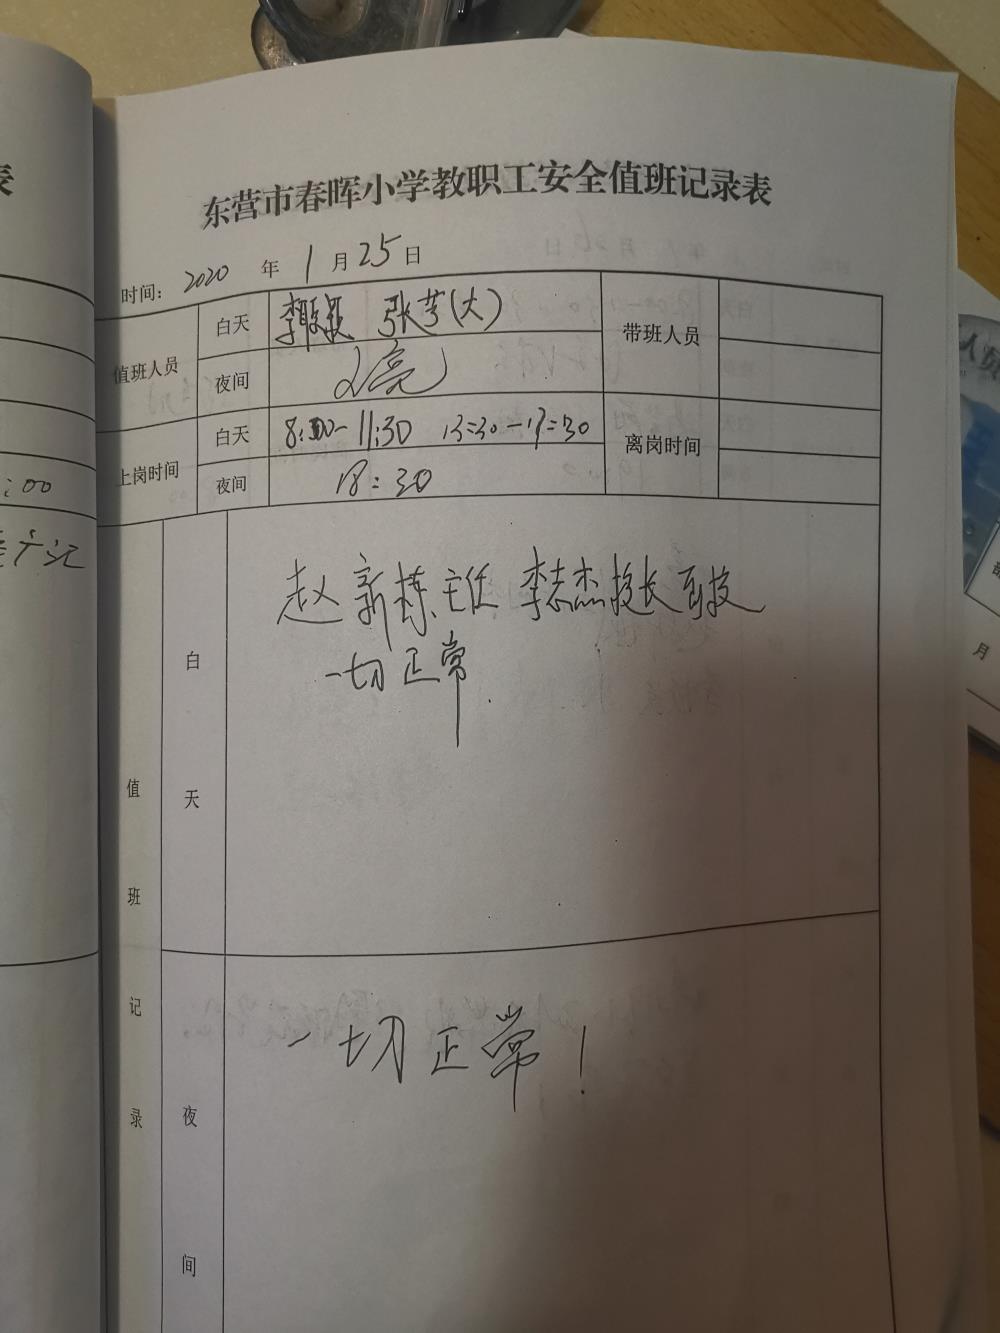 表
东营市春晖小学教职工安全值班记录表
时间: 2020 年 1 月 25 日
值班人员 白天 张芳(大) 带班人员
夜间 亮
上岗时间 白天 8:00-11:30 13:30-17:30 离岗时间
夜间 18:30
:00
值班记录
白天
赵新栋主任 李志杰校长 到校
一切正常
夜间
一切正常!
人员
月